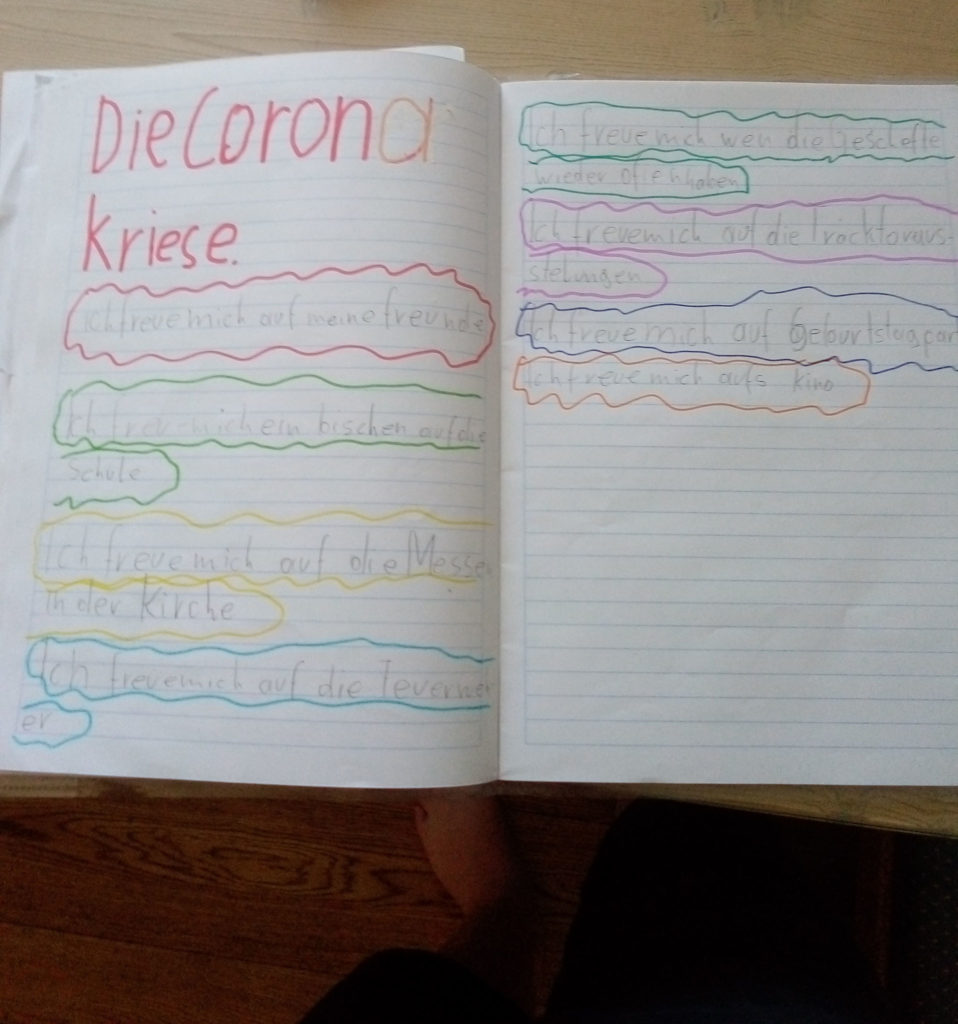 Die Corona
Kriese.
Ich freue mich auf meine freunde
Ich freue mich ein bischen auf die
Schule
Ich freue mich auf die Messe
in der Kirche
Ich freue mich auf die
er
Ich freue mich wen die Geschefte
wieder offen haben
Ich freue mich auf die tracktoraus-
stelungen
Ich freue mich auf Geburtstagpar
Ich freue mich aufs Kino